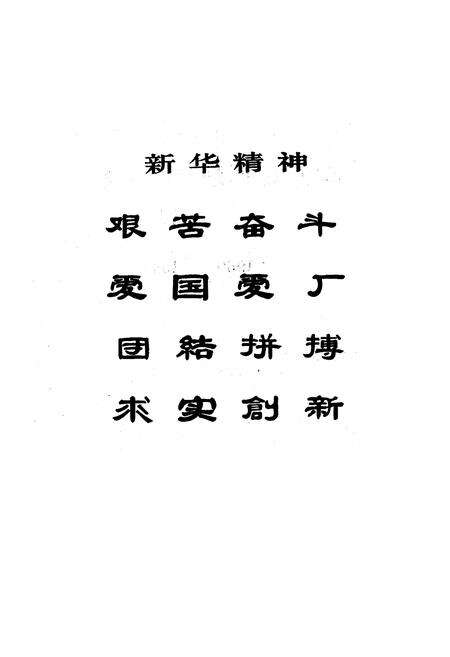 新华精神
艰苦奋斗
爱国爱厂
团結拼搏
求实創新